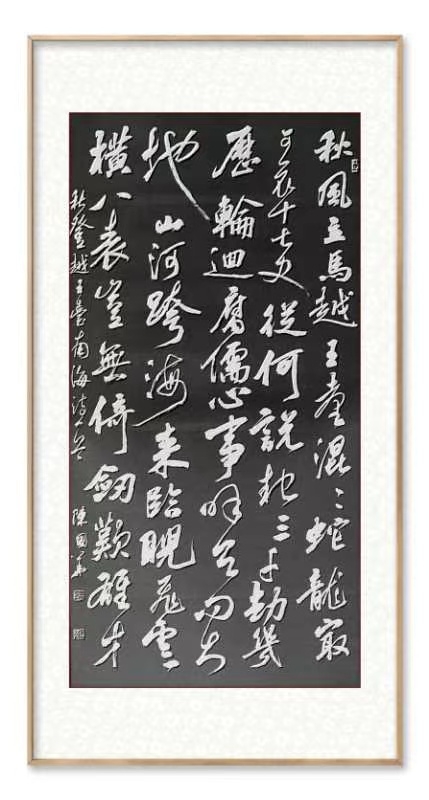 秋風立馬越王臺混〻蛇龍最
可哀十七史從何說起三千劫幾
歷輪迴腐儒心事呼天問大
地山河跨海來臨睨飛雲
橫八表豈無倚劒歎雄才
秋登越王臺南海詩 陳國華